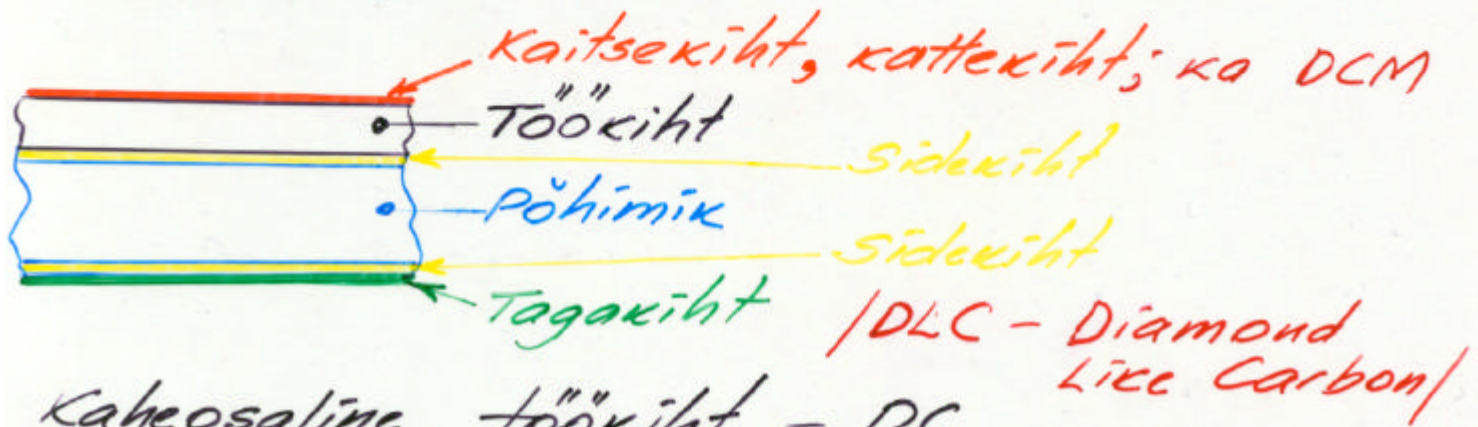 Kaitsekiht, kattekiht; ka DCM
Töökiht
Sidekiht
Põhimik
Sidekiht
Tagakiht
/DLC - Diamond
Like Carbon/
Kaheosaline töökiht - DC